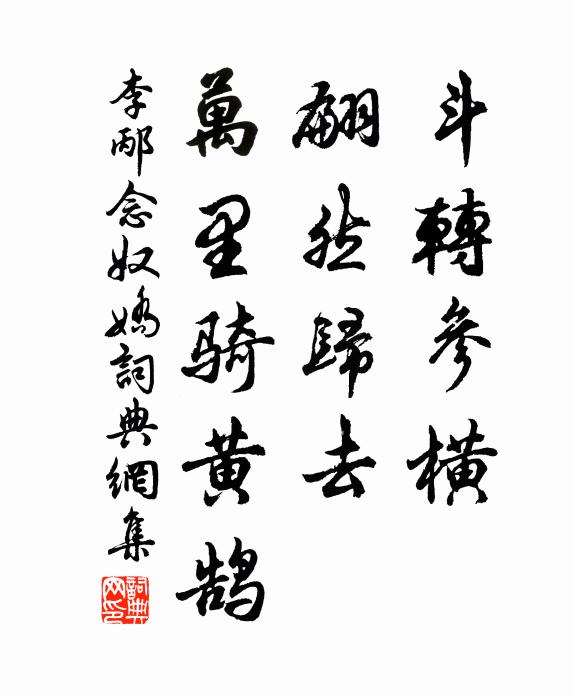 斗轉參橫
翩然歸去
萬里騎黃鵠
李邴念奴嬌詞典網集
詞典網印